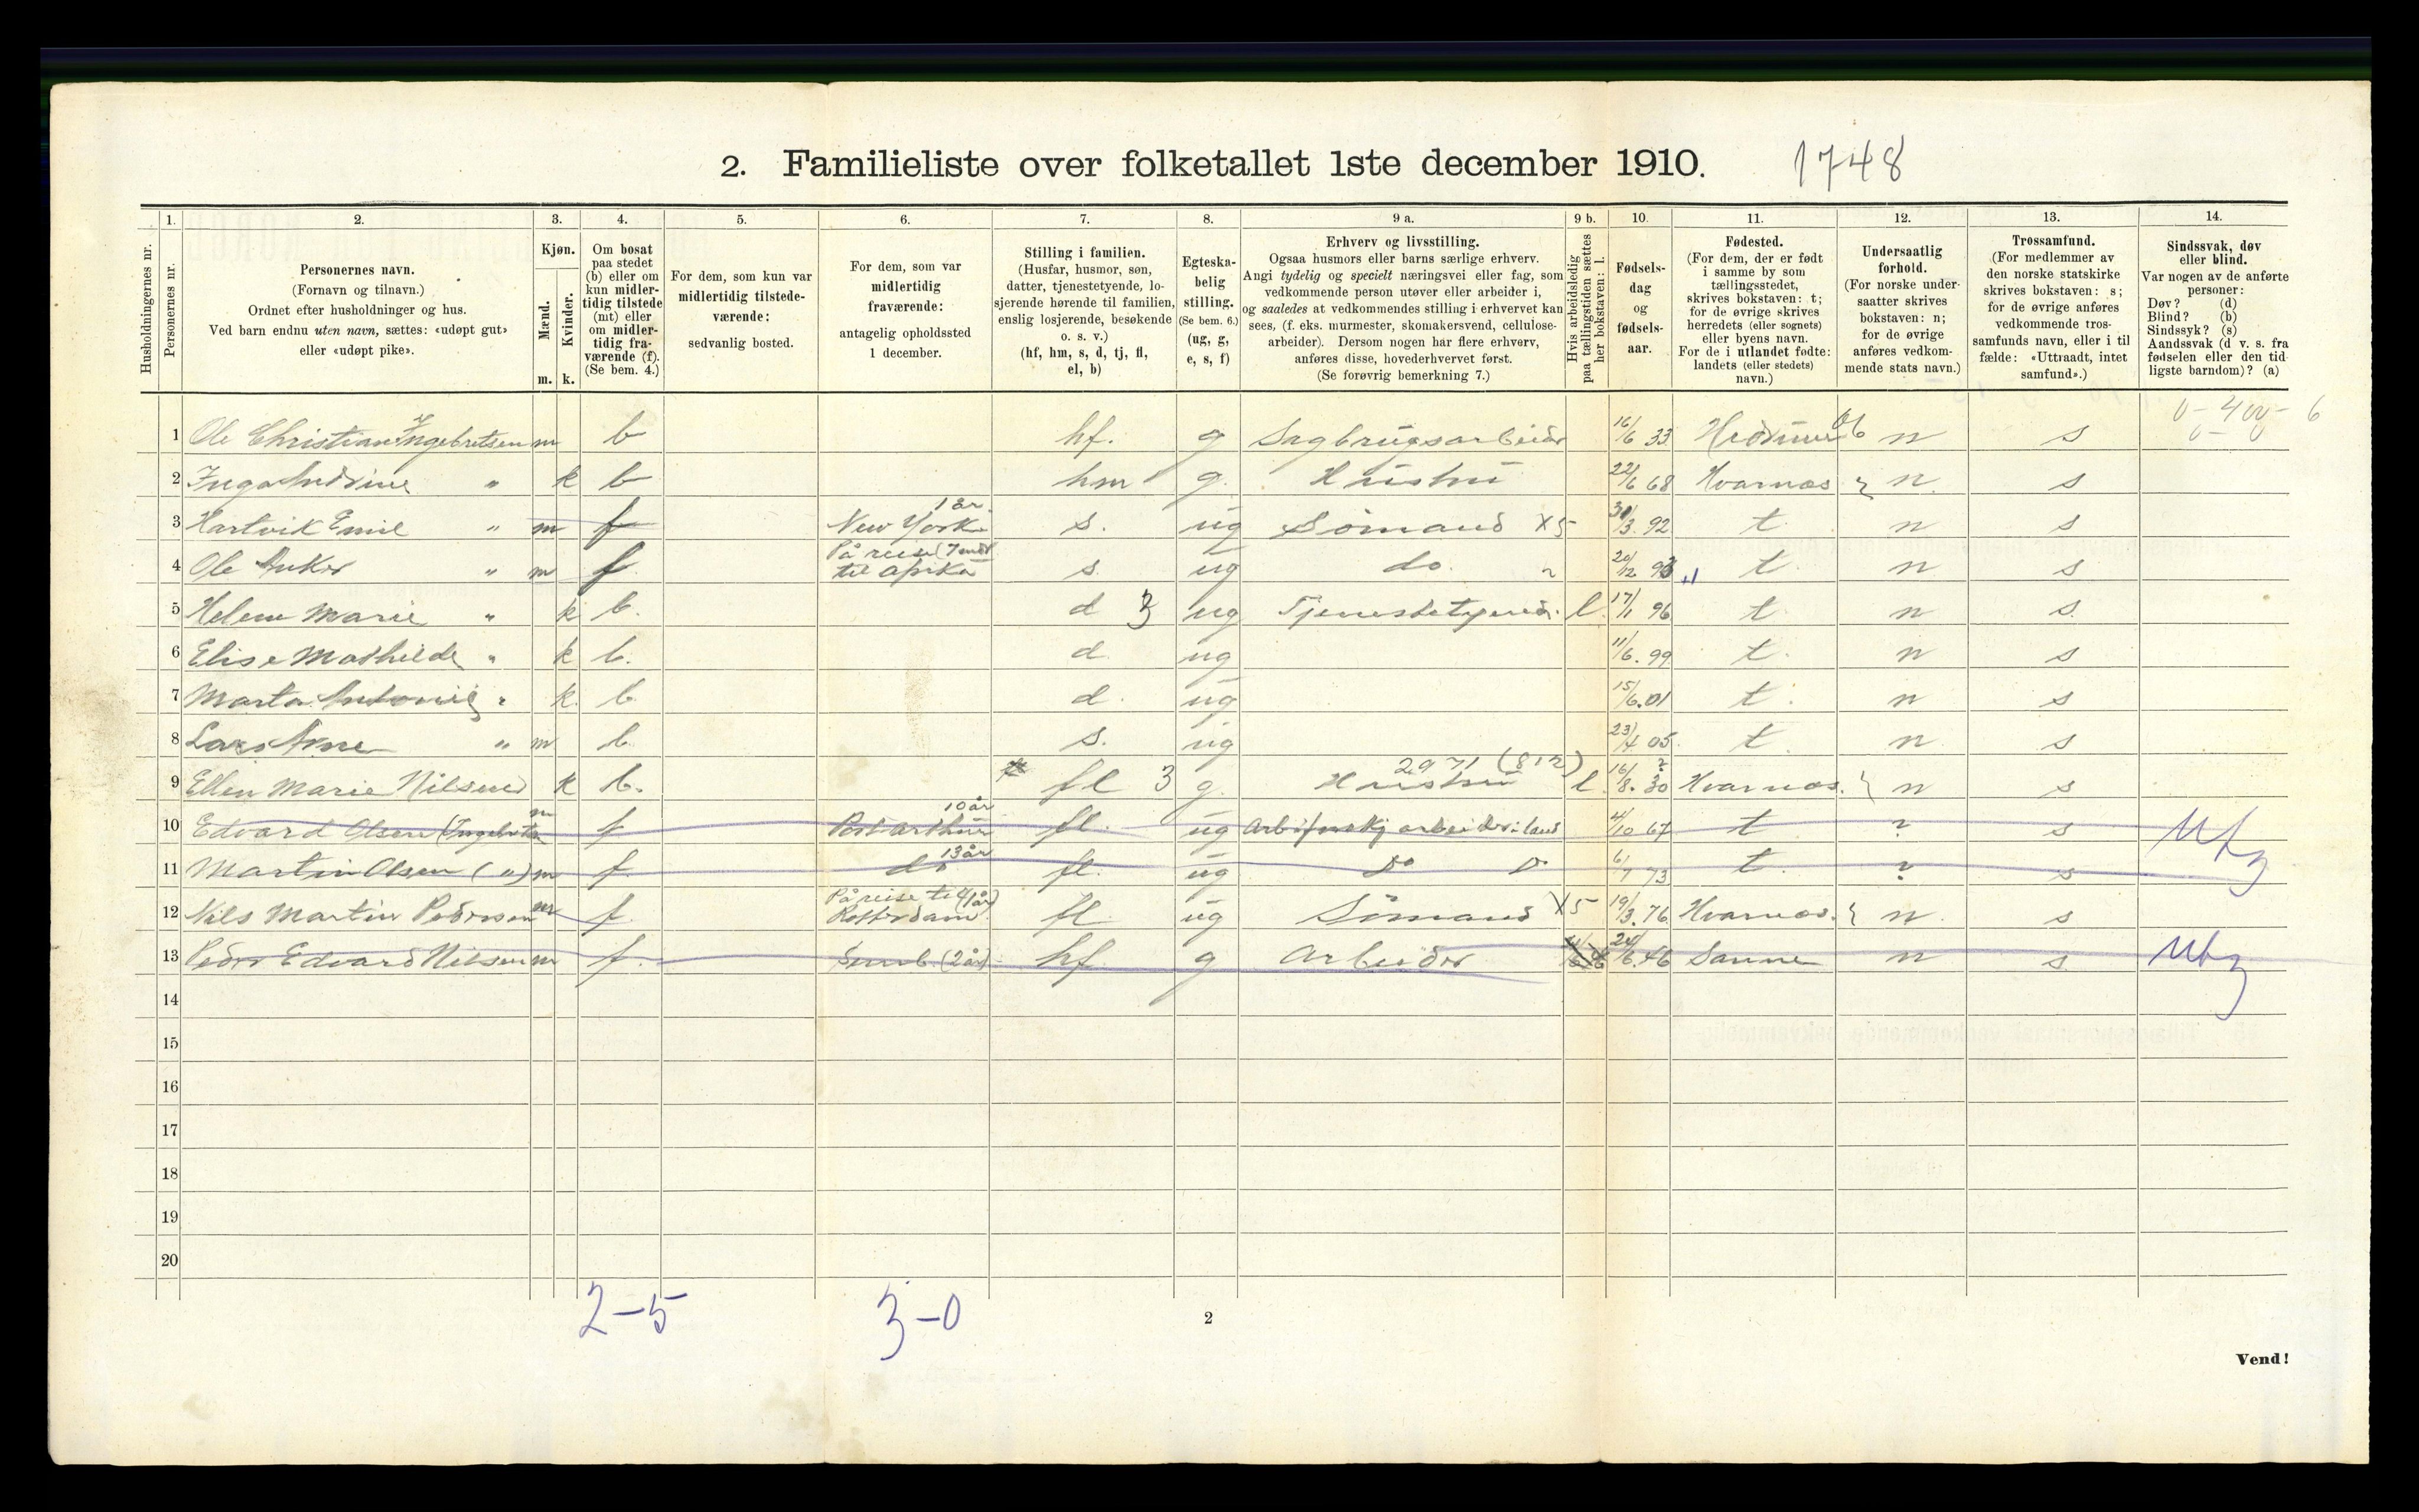 2. Familieliste over folketallet 1ste december 1910. 1748
1. 2. 3. 4. 5. 6. 7. 8. 9 a. 9 b. 10. 11. 12. 13. 14.
Husholdningernes nr.
Personernes nr.
Personernes navn.
(Fornavn og tilnavn.)
Ordnet efter husholdninger og hus.
Ved barn endnu uten navn, sættes: «udøpt gut»
eller «udøpt pike».
Kjøn.
Mænd.
Kvinder.
m. k.
Om bosat
paa stedet
(b) eller om
kun midler-
tidig tilstede
(mt) eller
om midler-
tidig fra-
værende (f).
(Se bem. 4.)
For dem, som kun var
midlertidig tilstede-
værende:
sedvanlig bosted.
For dem, som var
midlertidig
fraværende:
antagelig opholdssted
1 december.
Stilling i familien.
(Husfar, husmor, søn,
datter, tjenestetyende, lo-
sjerende hørende til familien,
enslig losjerende, besøkende
o. s. v.)
(hf, hm, s, d, tj, fl,
el, b)
Egteska-
belig
stilling.
(Se bem. 6.)
(ug, g,
e, s, f)
Erhverv og livsstilling.
Ogsaa husmors eller barns særlige erhverv.
Angi tydelig og specielt næringsvei eller fag, som
vedkommende person utøver eller arbeider i,
og saaledes at vedkommendes stilling i erhvervet kan
sees, (f. eks. murmester, skomakersvend, cellulose-
arbeider). Dersom nogen har flere erhverv,
anføres disse, hovederhvervet først.
(Se forøvrig bemerkning 7.)
Hvis arbeidsledig
paa tællingstiden sættes
her bokstaven: l.
Fødsels-
dag
og
fødsels-
aar.
Fødested.
(For dem, der er født
i samme by som
tællingsstedet,
skrives bokstaven: t;
for de øvrige skrives
herredets (eller sognets)
eller byens navn.
For de i utlandet fødte:
landets (eller stedets)
navn.)
Undersaatlig
forhold.
(For norske under-
saatter skrives
bokstaven: n;
for de øvrige
anføres vedkom-
mende stats navn.)
Trossamfund.
(For medlemmer av
den norske statskirke
skrives bokstaven: s;
for de øvrige anføres
vedkommende tros-
samfunds navn, eller i til
fælde: «Uttraadt, intet
samfund».)
Sindssvak, døv
eller blind.
Var nogen av de anførte
personer:
Døv? (d)
Blind? (b)
Sindssyk? (s)
Aandssvak (d v. s. fra
fødselen eller den tid
ligste barndom)? (a)
1 Ole Christian Ingebretsen m b hf. g Sagbrugsarbeider 16/6 33 n s
2 Inga Andrine " k b hm g. Hustru 22/6 68 Hvarnæs n. s
3 Hartvik Emil " m f New York 1 år s. ug Sømand X5 30/3. 92 t n s
4 Ole Anker " m f På reise til s. ug do. 20/12 t n s
5 Helene Marie " k b. d 3 ug l. 17/1 96 t n s.
6 Elise Mathilde " k b. d. ug 11/6. 99 t. n s
7 Marta Antonie " k. b. d. ug 15/6.01 t. n s
8 Lars Arne " m b. s. ug 23/4 05. t. n s
9 Ellen Marie Nilsen k b. fl 3 g. 2971 (812) Hustru l. 16/8. 30 ? Hvarnæs. n s
10 Edvard Olsen m f Port arthur 10 år fl. ug 4/10 67 t ? s
11 Martin Olsen (") m f. do 13 år fl. ug Do Do 6/7 73 t. ? s
12 Nils Martin Pedersen m f. På reise til Rotterdam fl. ug Sømand X5 19/3. 76 Hvarnæs. n. s
13 Peder Edvard Nilsen m f. (2 år) hf g Arbeider 24/6.46 n s
14
15
16
17
18
19
20
2-5 3-0
2
Vend!